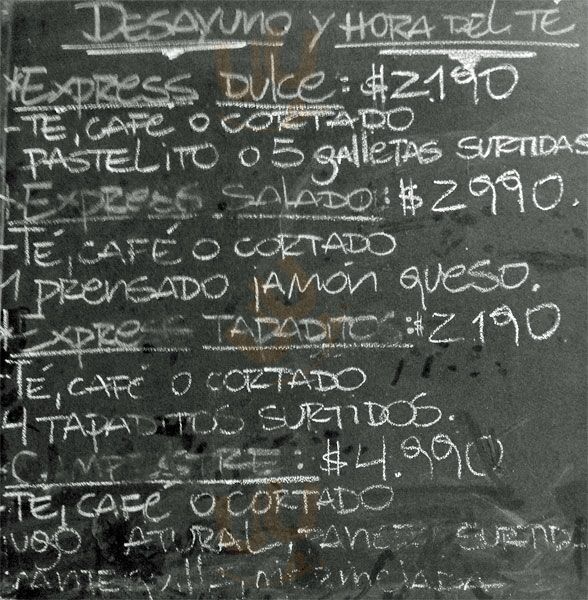 DESAYUNO Y HORA DEL TE
*EXPRESS DULCE: $2.190
-TÉ, CAFÉ O CORTADO
PASTELITO O 5 galletas SURTIDAS
-EXPRESS SALADO: $2990.
-TÉ, CAFÉ O CORTADO
1 PRENSADO JAMÓN QUESO.
*EXPRESS TAPADITOS: $2190
TÉ, CAFÉ O CORTADO
4 TAPADITOS SURTIDOS.
-CAMPESTRE: $4.990
-TÉ, CAFÉ O CORTADO
ATURAL, SURTID